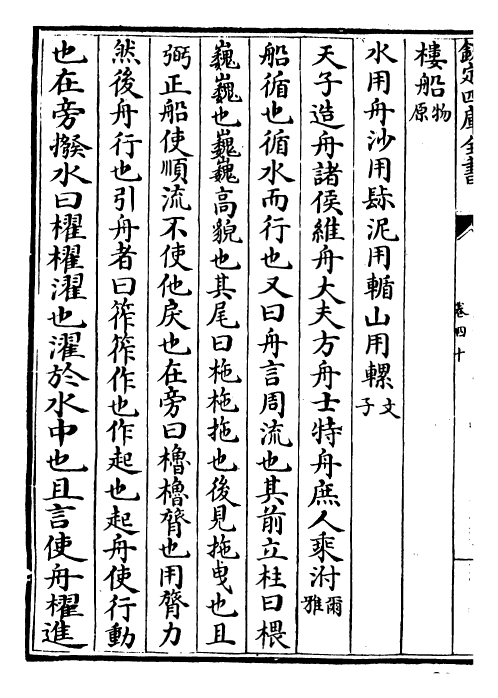 欽定四庫全書
卷四十
樓船物原
水用舟沙用䑧泥用輴山用樏文子
天子造舟諸侯維舟大夫方舟士特舟庶人乘泭爾雅
船循也循水而行也又曰舟言周流也其前立柱曰椳
巍巍也巍巍高貌也其尾曰柂柂拖也後見拖曳也且
弼正船使順流不使他戾也在旁曰櫓櫓膂也用膂力
然後舟行也引舟者曰筰筰作也作起也起舟使行動
也在旁撥水曰櫂櫂濯也濯於水中也且言使舟櫂進